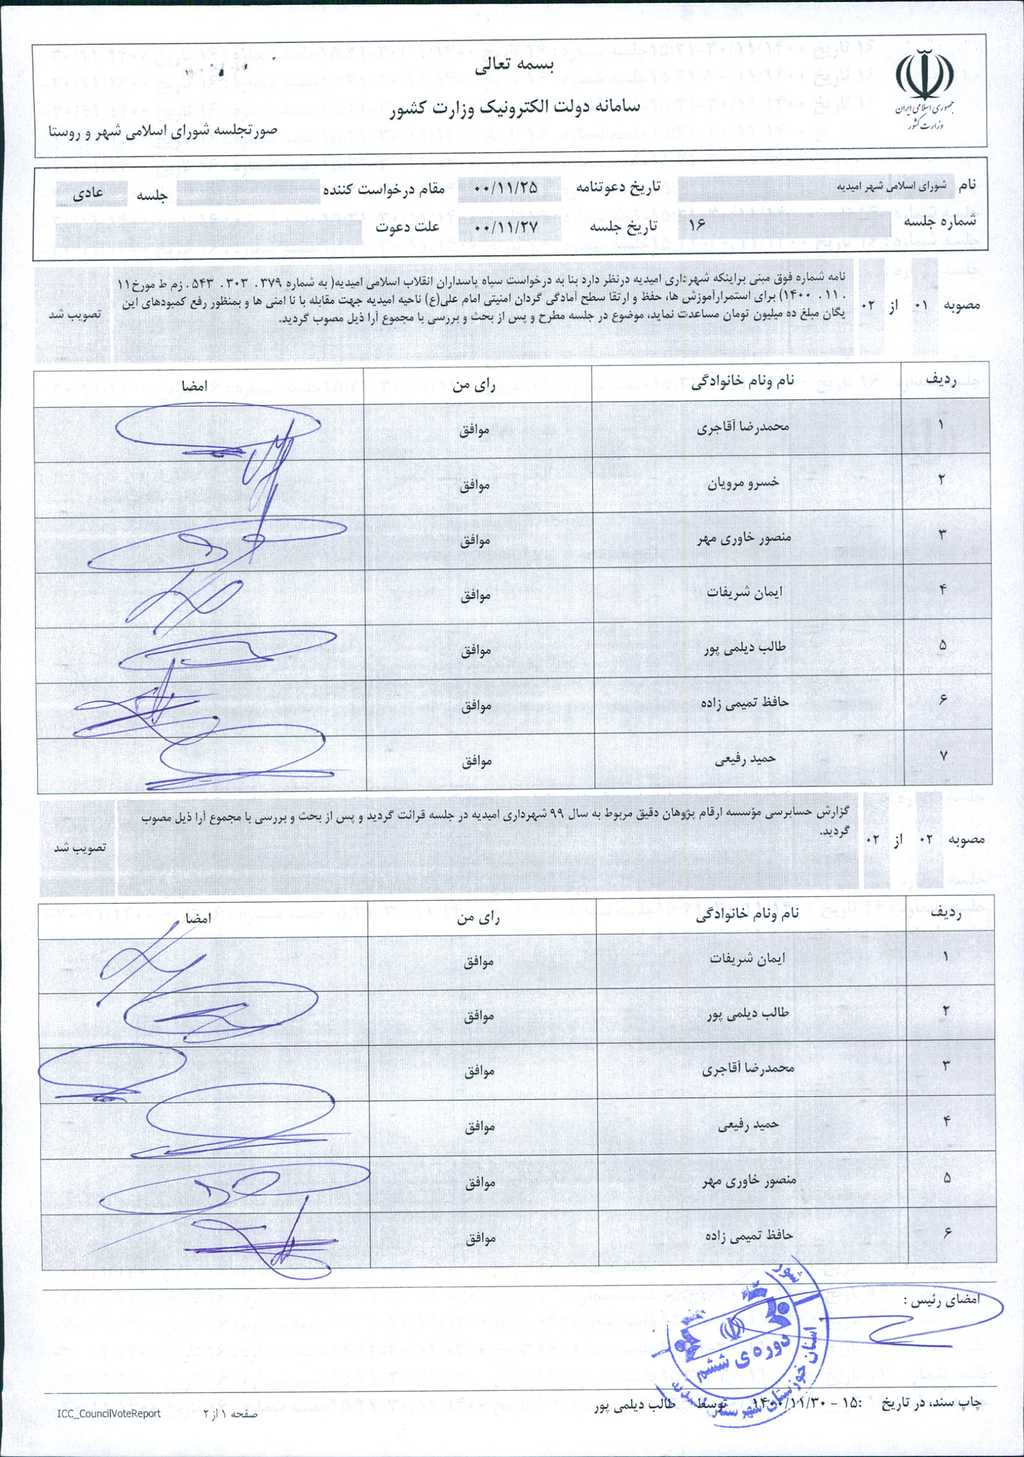 بسمه تعالی
سامانه دولت الکترونیک وزارت کشور
صورتجلسه شورای اسلامی شهر و روستا
جمهوری اسلامی ایران
وزارت کشور
نام شورای اسلامی شهر امیدیه تاریخ دعوتنامه ۰۰/۱۱/۲۵ مقام درخواست کننده جلسه عادی
شماره جلسه ۱۶ تاریخ جلسه ۰۰/۱۱/۲۷ علت دعوت
مصوبه ۰۱ از ۰۲
نامه شماره فوق مبنی براینکه شهرداری امیدیه درنظر دارد بنا به درخواست سپاه پاسداران انقلاب اسلامی امیدیه( به شماره ۳۷۹ . ۳۰۳ . ۵۴۳ . زم ط مورخ۱۱
. ۱۱ . ۱۴۰۰) برای استمرارآموزش ها، حفظ و ارتقا سطح آمادگی گردان امنیتی امام علی(ع) ناحیه امیدیه جهت مقابله با نا امنی ها و بمنظور رفع کمبودهای این
یگان مبلغ ده میلیون تومان مساعدت نماید، موضوع در جلسه مطرح و پس از بحث و بررسی با مجموع آرا ذیل مصوب گردید.
تصویب شد
ردیف نام ونام خانوادگی رای من امضا
۱ محمدرضا آقاجری موافق
۲ خسرو مرویان موافق
۳ منصور خاوری مهر موافق
۴ ایمان شریفات موافق
۵ طالب دیلمی پور موافق
۶ حافظ تمیمی زاده موافق
۷ حمید رفیعی موافق
مصوبه ۰۲ از ۰۲
گزارش حسابرسی مؤسسه ارقام پژوهان دقیق مربوط به سال ۹۹ شهرداری امیدیه در جلسه قرائت گردید و پس از بحث و بررسی با مجموع آرا ذیل مصوب
گردید.
تصویب شد
ردیف نام ونام خانوادگی رای من امضا
۱ ایمان شریفات موافق
۲ طالب دیلمی پور موافق
۳ محمدرضا آقاجری موافق
۴ حمید رفیعی موافق
۵ منصور خاوری مهر موافق
۶ حافظ تمیمی زاده موافق
امضای رئیس :
دوره ی ششم
استان خوزستان شهرستان
چاپ سند، در تاریخ ۱۵: - ۱۴۰۰/۱۱/۳۰ توسط طالب دیلمی پور
صفحه ۱ از ۲
ICC_CouncilVoteReport